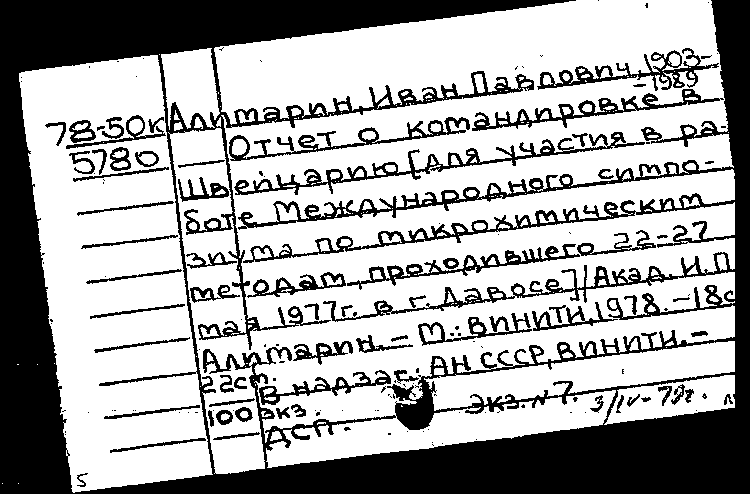 78-50к Алимарин, Иван Павлович, 1903-
-1989
5780 Отчет о командировке в
Швейцарию [для участия в ра-
боте Международного симпо-
зиума по микрохимическим
методам, проходившего 22-27
мая 1977г. в г. Давосе]/Акад. И.П
Алимарин. - М.: ВИНИТИ, 1978. - 18с
22см. В надзаг.: АН СССР, ВИНИТИ. -
100 экз. экз. №7. 3/IV-79г.
ДСП.
5